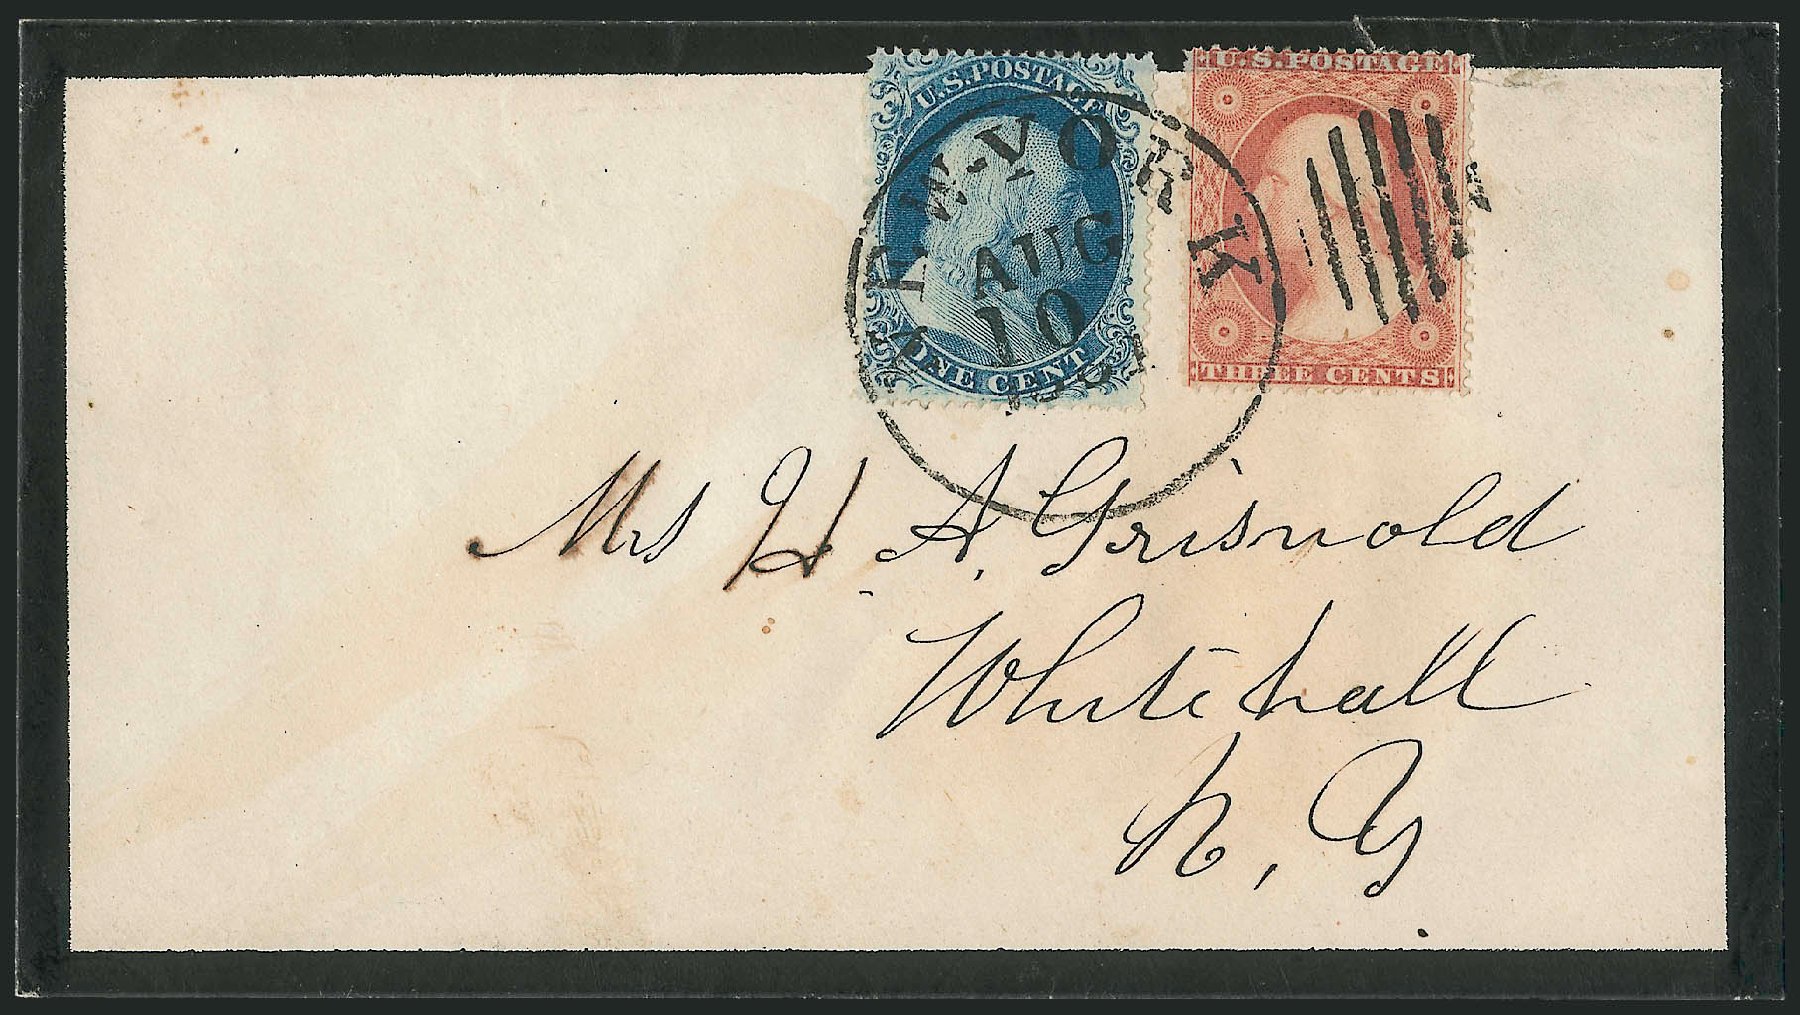 U.S. POSTAGE
ONE CENT
U.S. POSTAGE
THREE CENTS
NEW-YORK
AUG
10
Mrs H. A. Griswold
Whitehall
N, Y